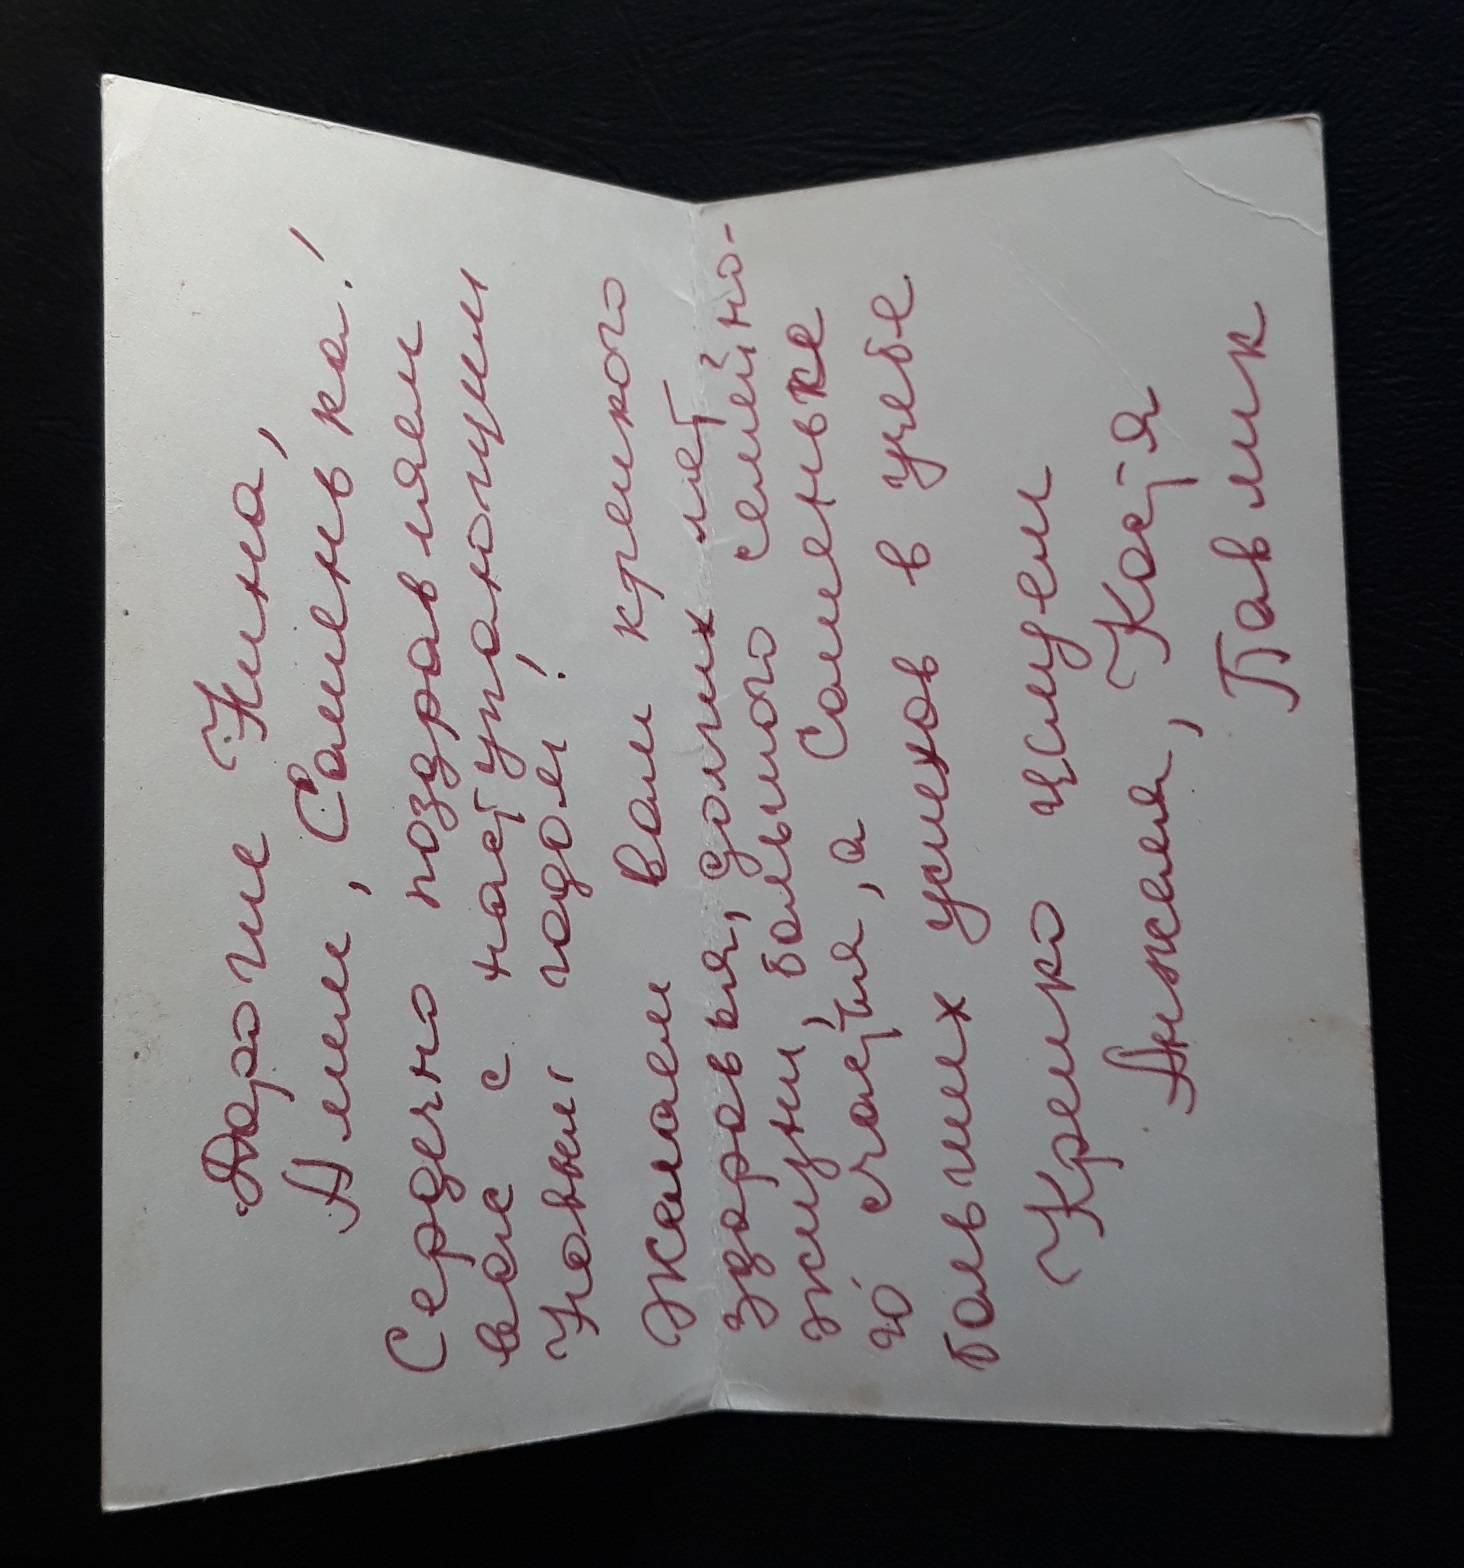 Дорогие Нина,
Алик, Саменька!
Сердечно поздравляем
вас с наступающим
Новым годом!
Желаем вам крепкого
здоровья, долгих лет
жизни, большого семейно-
го счастья, а Саменьке
больших успехов в учебе
Крепко целуем
Анжела, Костя
Павлик